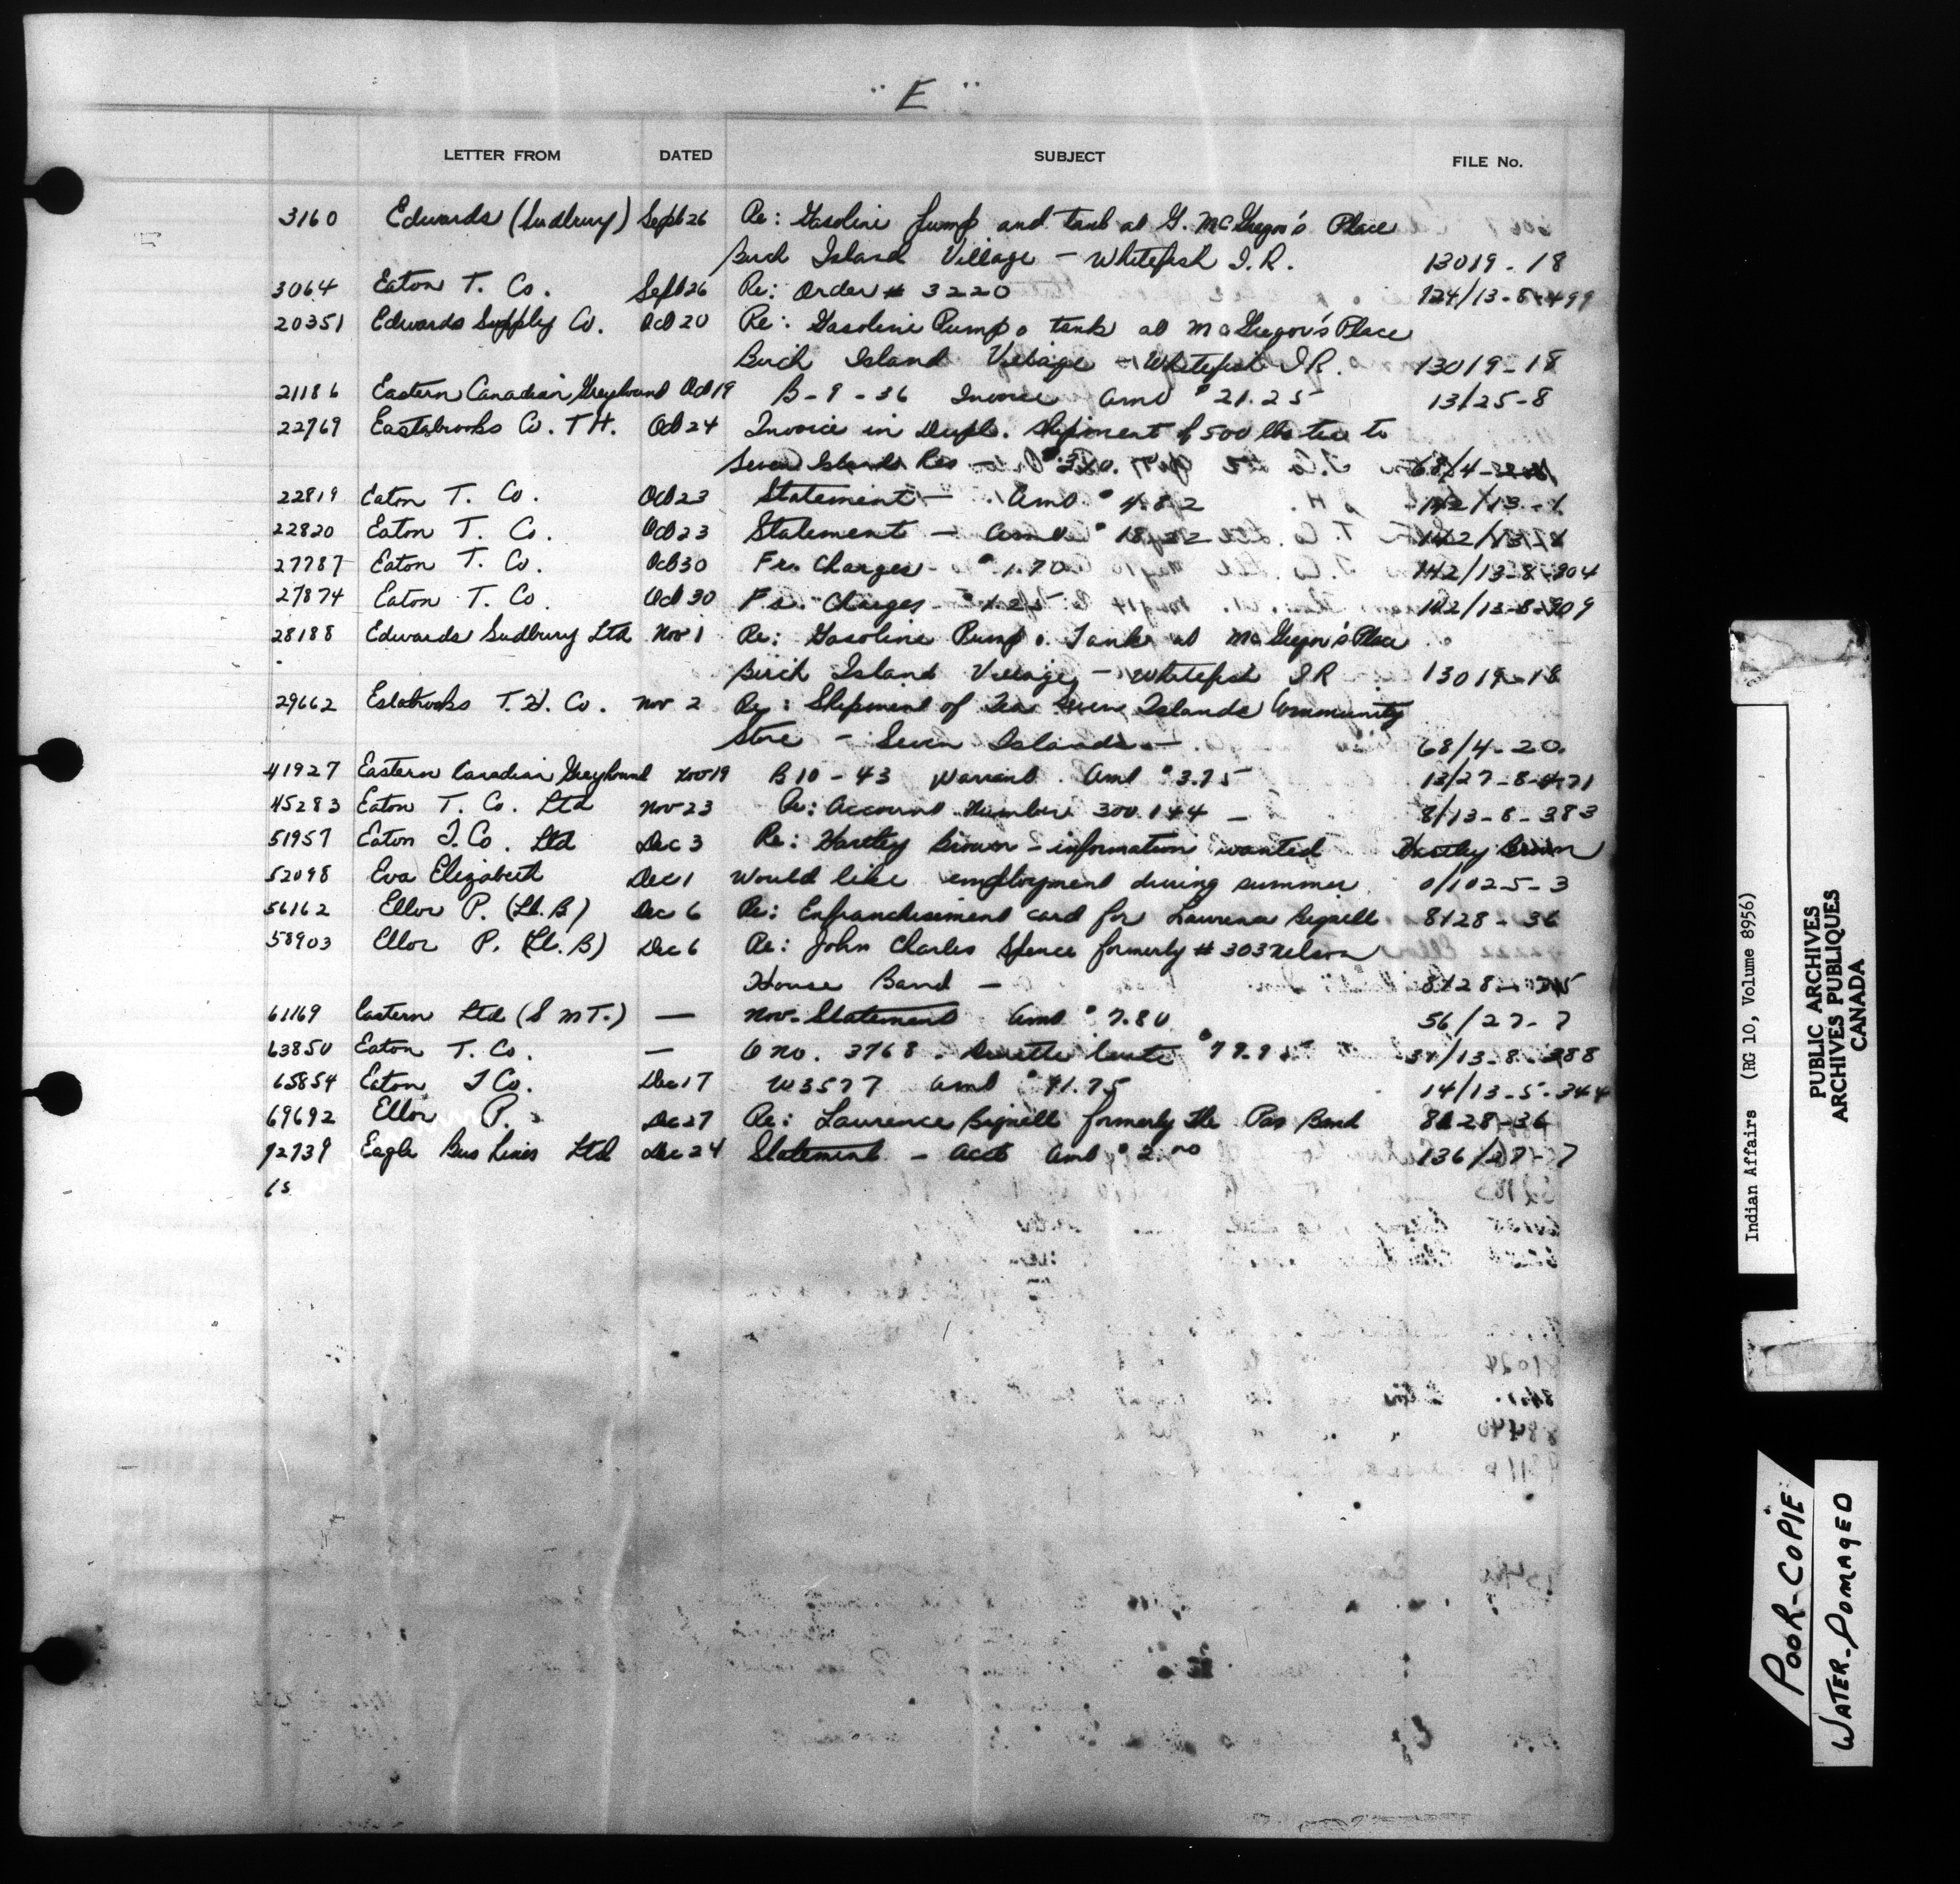 "E"
LETTER FROM DATED SUBJECT FILE No.
3160 Edwards (Sudbury) Sept 26 Re: Gasoline Pump and tank at G. McGregor's Place
Birch Island Village - Whitefish I.R. 13019-18
3064 Eaton T. Co. Sept 26 Re: Order # 3220 124/13-8-499
20351 Edwards Supply Co. Oct 20 Re: Gasoline Pump & tank at McGregor's Place
Birch Island Village - Whitefish I.R. 13019-18
21186 Eastern Canadian Greyhound Oct 19 B-9-36 Invoice Amt $21.25 13/25-8
22769 Eastabrooks Co. T.H. Oct 24 Invoice in Dupl. shipment of 500 lbs tea to
Seven Islands Res - 68/4-
22819 Eaton T. Co. Oct 23 Statement - Amt $4.82 142/13-
22820 Eaton T. Co. Oct 23 Statement - Amt
27787 Eaton T. Co. Oct 30 Frt. Charges - $1.70 142/13-8-904
27874 Eaton T. Co. Oct 30 Frt. Charges - $1.25 142/13-8-909
28188 Edwards Sudbury Ltd Nov 1 Re: Gasoline Pump & Tank at McGregor's Place
Birch Island Village - Whitefish I.R 13019-18
29662 Estabrooks T.H. Co. Nov 2 Re: Shipment of Tea Seven Islands Community
Store - Seven Islands - 68/4-20
41927 Eastern Canadian Greyhound Nov 19 B10-43 Warrant. Amt $3.75 13/27-8-471
45283 Eaton T. Co. Ltd Nov 23 Re: Account Number 300.144 - 8/13-8-383
51957 Eaton T. Co. Ltd Dec 3 Re: Hartley Brown - information wanted Hartley Brown
52098 Eva Elizabeth Dec 1 Would like employment during summer 0/102-5-3
56162 Ellor P. (Lt. B) Dec 6 Re: Enfranchisement card for Lawrence Bignell 8128-36
58903 Ellor P. (Lt. B) Dec 6 Re: John Charles Spence formerly # 303 Nelson
House Band - 8128-
61169 Eastern Ltd (S M T.) — Nov. Statement Amt $7.80 56/27-7
63850 Eaton T. Co. — O no. 3768. $79.95 /13-8-388
65854 Eaton T Co. Dec 17 W3577 Amt $41.75 14/13-5-344
69692 Ellor P. Dec 27 Re: Lawrence Bignell formerly The Pas Band 8128-36
72739 Eagle Bus Lines Ltd Dec 24 Statement - Acct Amt $2.00 136/27-7
65
Indian Affairs (RG 10, Volume 8956)
PUBLIC ARCHIVES
ARCHIVES PUBLIQUES
CANADA
POOR-COPIE
WATER-DOMAGED